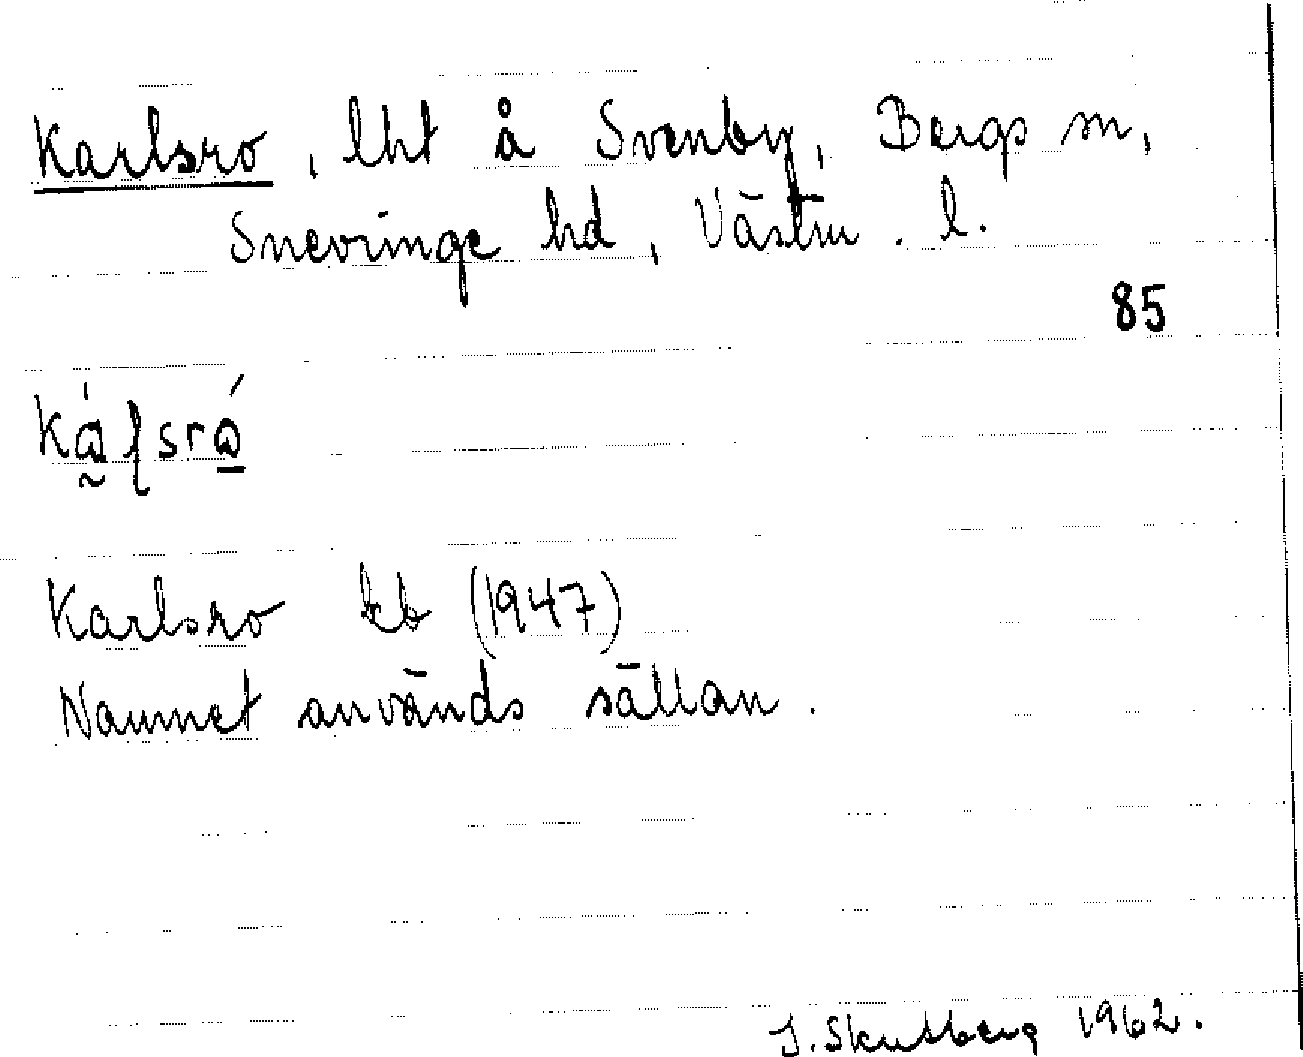 Karlsro, lht å Svenby, Bergs sn,
Snevringe hd, Västm. l.
85
Karlsro kb (1947)
Namnet används sällan.
1962.